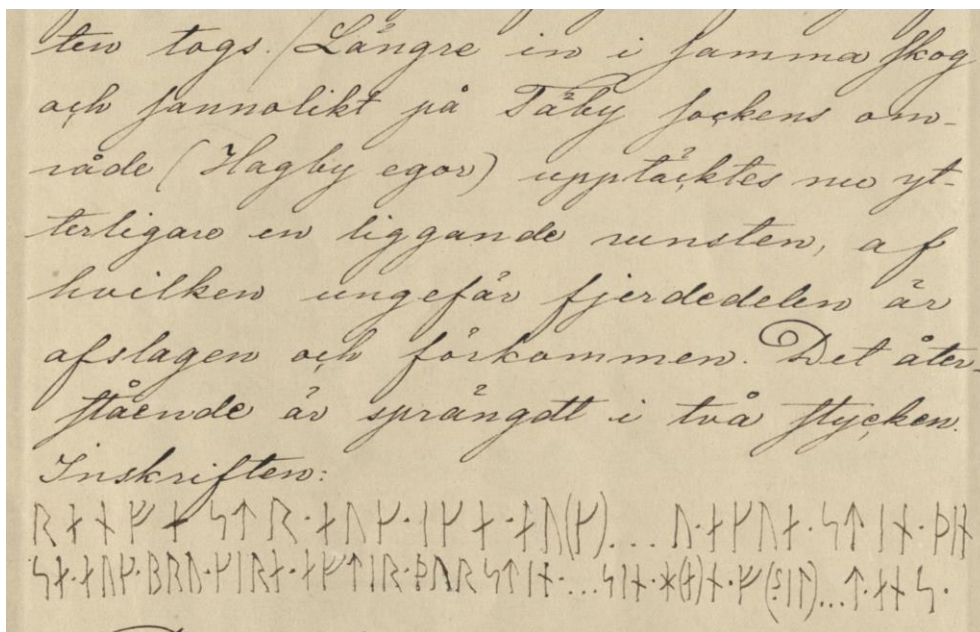 ten togs. / Längre in i samma skog
och sannolikt på Täby sockens om-
råde (Hagby egor) upptäcktes nu yt-
terligare en liggande runsten, af
hvilken ungefär fjerdedelen är
afslagen och förkommen. Det åter-
stående är sprängdt i två stycken.
Inskriften:
ᚱᛅᚾᚠᛅᛋᛏᚱ·ᛅᚢᚴ·ᛁᚴᛅ·ᛅᚢ(ᚴ)... ᚢ·ᛅᚴᚢᛅ·ᛋᛏᛁᚾ·ᚦᛁᚾ
ᛋᛅ·ᛅᚢᚴ·ᛒᚱᚢ·ᚴᛁᚱᛅ·ᛅᚠᛏᛁᚱ·ᚦᚢᚱᛋᛏᛁᚾ·...ᛋᛁᚾ·